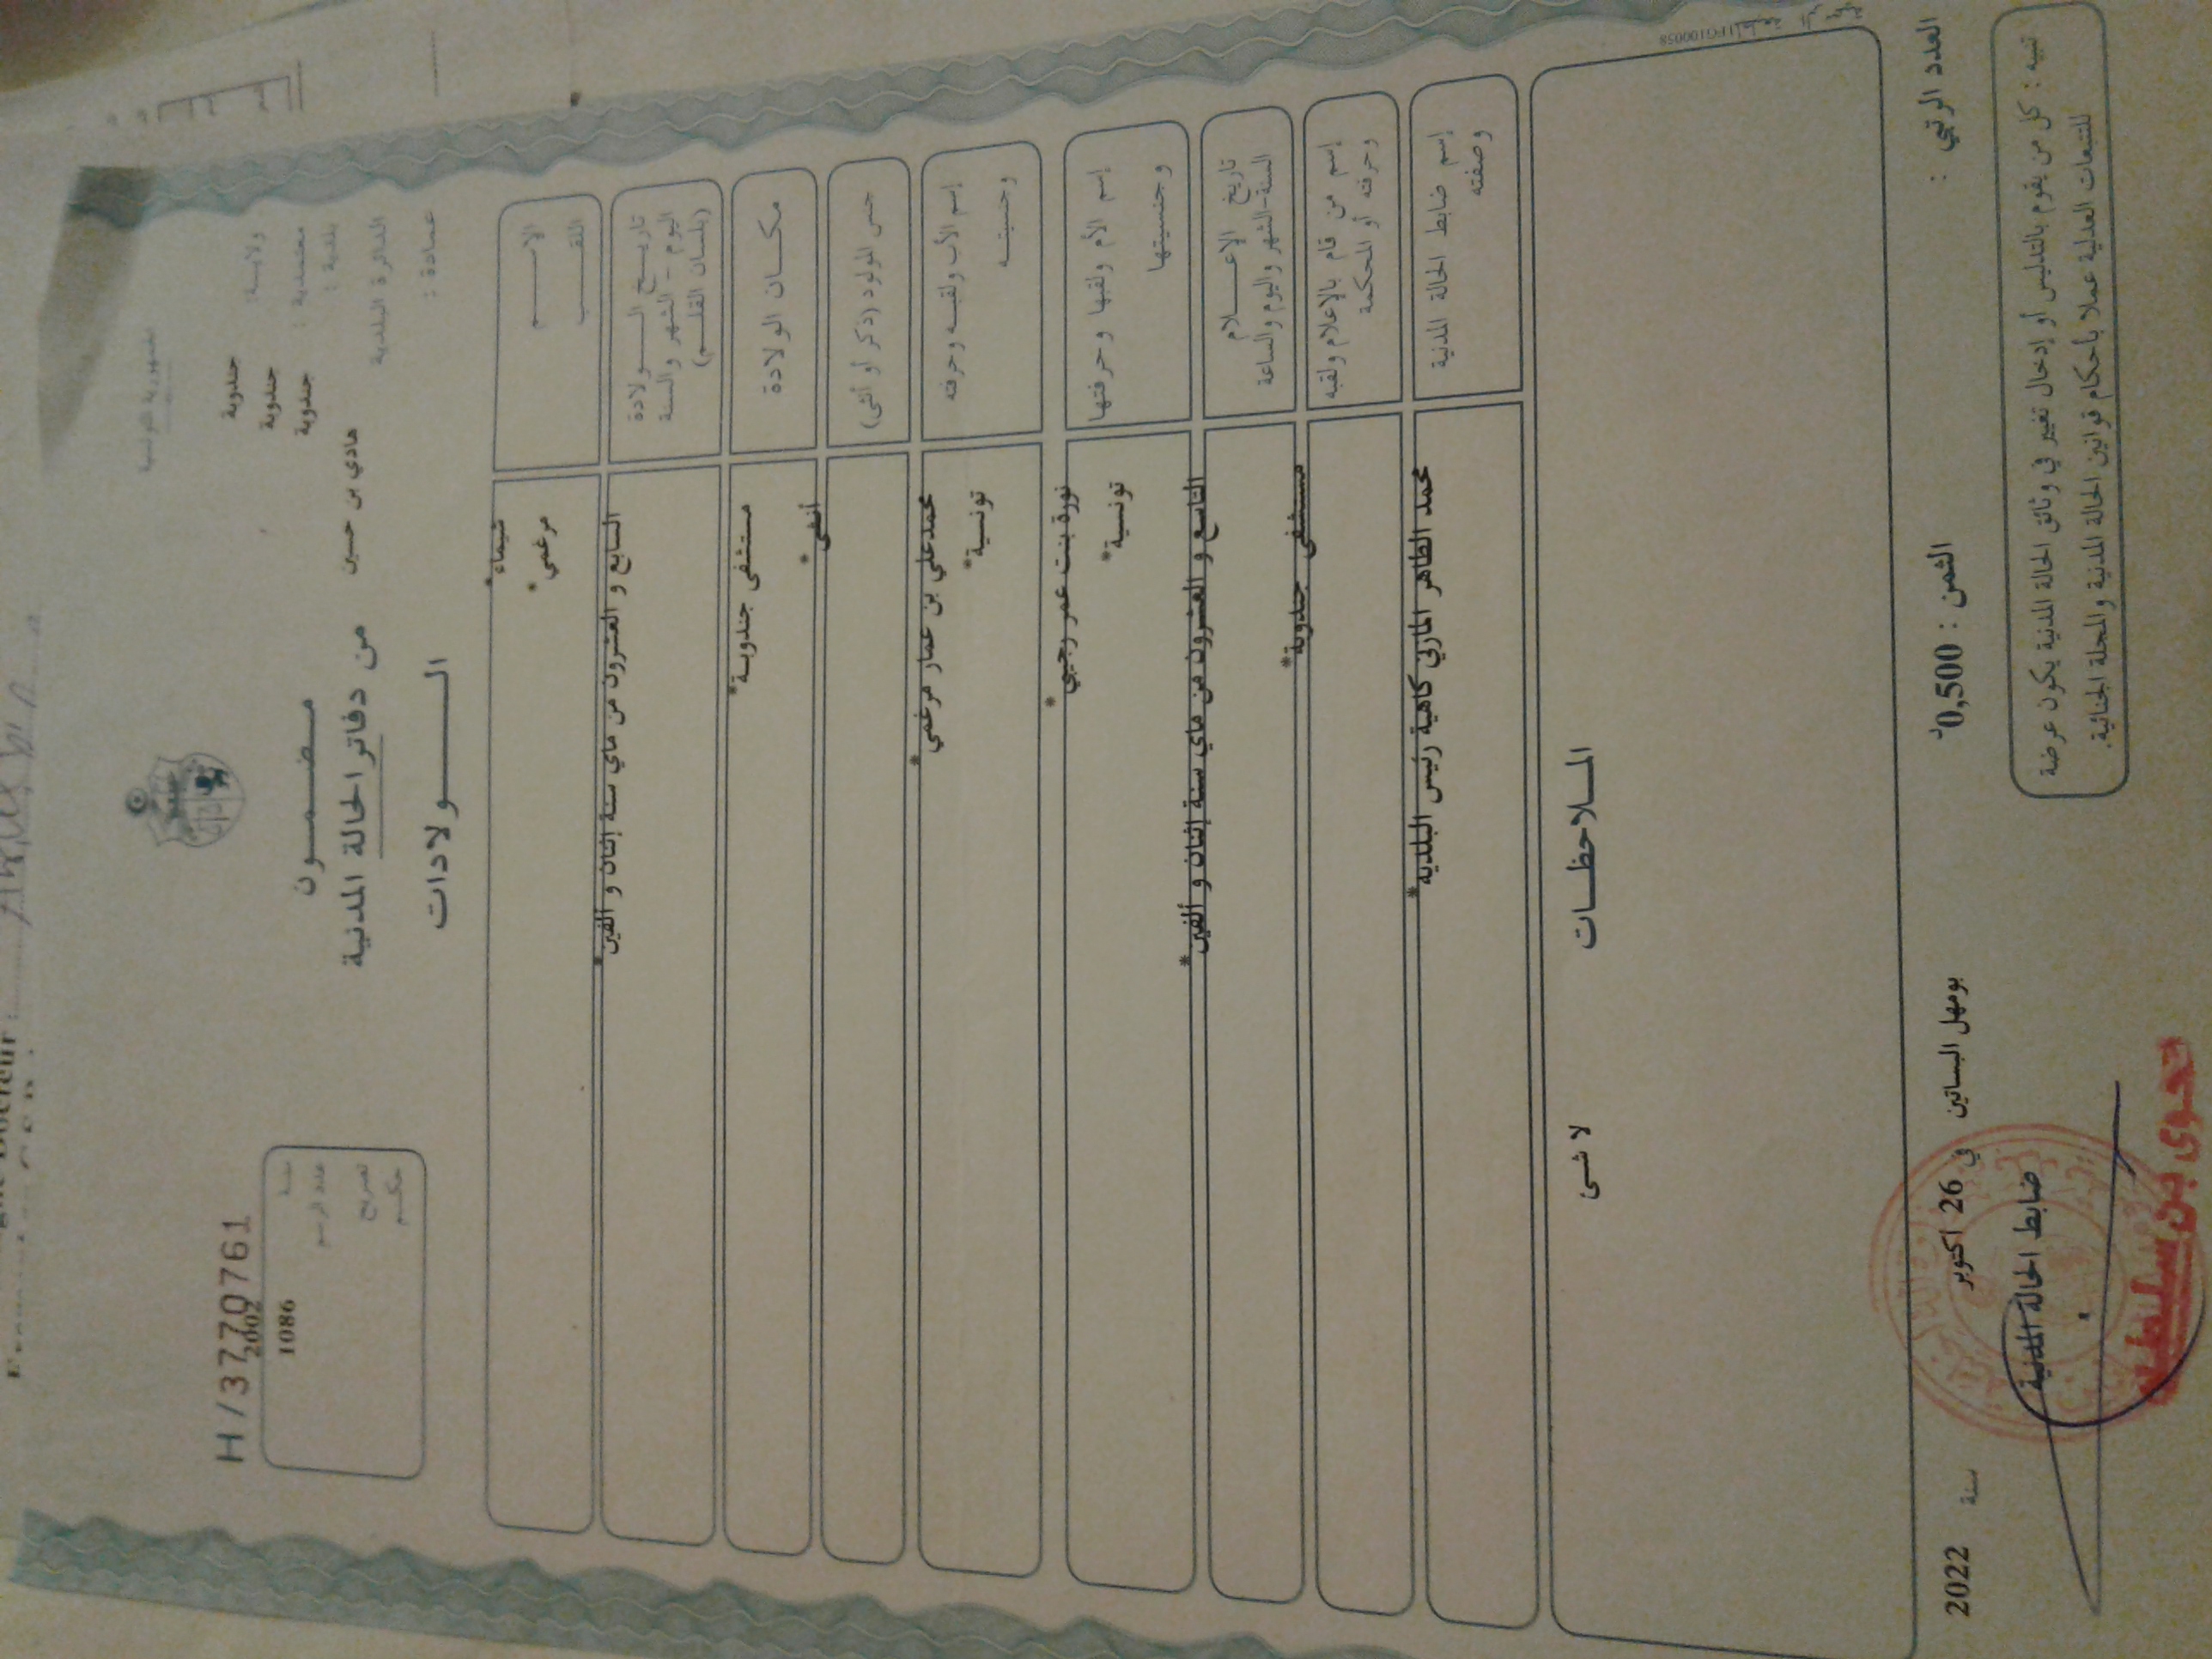 الجمهورية التونسية
ولايـــة: جندوبة
معتمدية : جندوبة
بلدية : جندوبة
الدائرة البلدية هادي بن حسين
عمادة :
H/37770761
سنـة 2002
عدد الرسم 1086
تصريح
حكـم
مـضـمـون
من دفاتر الحالة المدنية
الـــولادات
الاســـم شيماء*
اللقـــب مرغمي*
تاريـخ الـــولادة السابع و العشرون من ماي سنة إثنان و ألفين*
اليوم - الشهر والسنة
(بلسان القلـم)
مكـــان الولادة مستشفى جندوبة*
جنس المولود (ذكر أو أنثى) أنثى*
إسم الأب ولقبـه وحرفته محمدعلي بن عمار مرغمي*
وجنسيتـــه تونسية*
إسم الأم ولقبها وحرفتها نورة بنت عمر رجيبي*
وجنسيتها تونسية*
تاريخ الإعــــلام التاسع و العشرون من ماي سنة إثنان و ألفين*
السنة-الشهر واليوم والساعة
إسم من قام بالإعلام ولقبه مستشفى جندوبة*
وحرفته أو المحكمة
إسم ضابط الحالة المدنية محمد الطاهر المازني كاهية رئيس البلدية*
وصفته
المـــلاحظـــات
لا شئ
العدد الرتبي :
الثمن : 0,500د
بومهل البساتين في 26 اكتوبر سنة 2022
ضابط الحالة المدنية
تنبيه : كل من يقوم بالتدليس أو إدخال تغيير في وثائق الحالة المدنية يكون عرضة
للتتبعات العدلية عملا بأحكام قوانين الحالة المدنية والمجلة الجنائية.